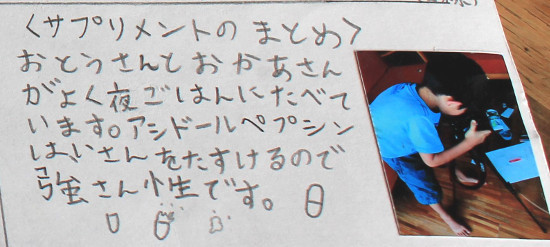 〈サプリメントの まとめ〉
おとうさんとおかあさん
がよく夜ごはんにたべて
います。アシドールペプシン
はいさんをたすけるので
強さん性です。